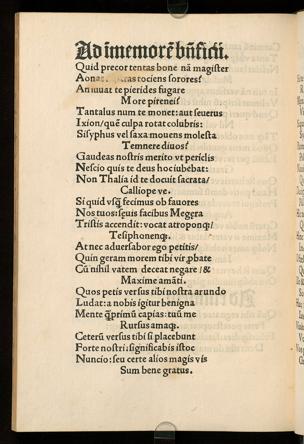 Ad imemorē bn̄ficii.
Quid precor tentas bone nā magister
Aonas ras tociens sorores?
An iuuat te pierides fugare
More pirenei?
Tantalus num te monet: aut seuerus
Ixion/quē culpa rotat colubris:
Sisyphus vel saxa mouens molesta
Temnere diuos?
Gaudeas nostris merito vt periclis
Nescio quis te deus hoc iubebat:
Non Thalia id te docuit sacrata/
Calliope ve.
Si quid vsq̄ fecimus ob fauores
Nos tuos: seuis facibus Megęra
Tristis accendit: vocat atroponq̄/
Tesiphonenq̄.
At nec aduersabor ego petitis/
Quin geram morem tibi vir ꝓbate
Cū nihil vatem deceat negare/&
Maxime amāti.
Quos petis versus tibi nostra arundo
Ludat: a nobis igitur benigna
Mente q̄primū capias: tuū me
Rursus amaq̄.
Ceterū versus tibi si placebunt
Forte nostri: significabis istoc
Nuncio: seu certe alios magis vis
Sum bene gratus.